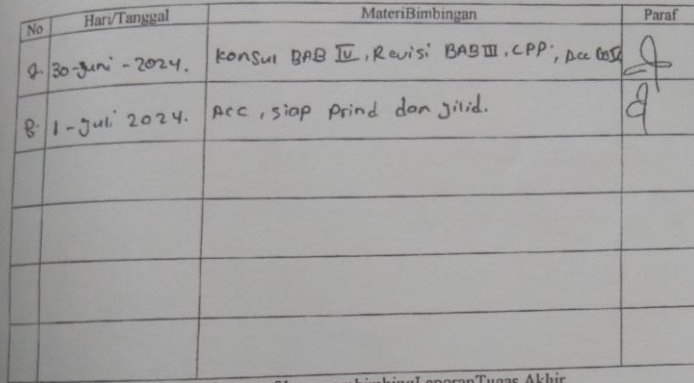 No Hari/Tanggal MateriBimbingan Paraf
30-Juni-2024. Konsul BAB IV, Revisi BAB III, CPP, Acc
8. 1-Juli 2024. Acc, siap Prind dan jilid.
LaporanTugas Akhir